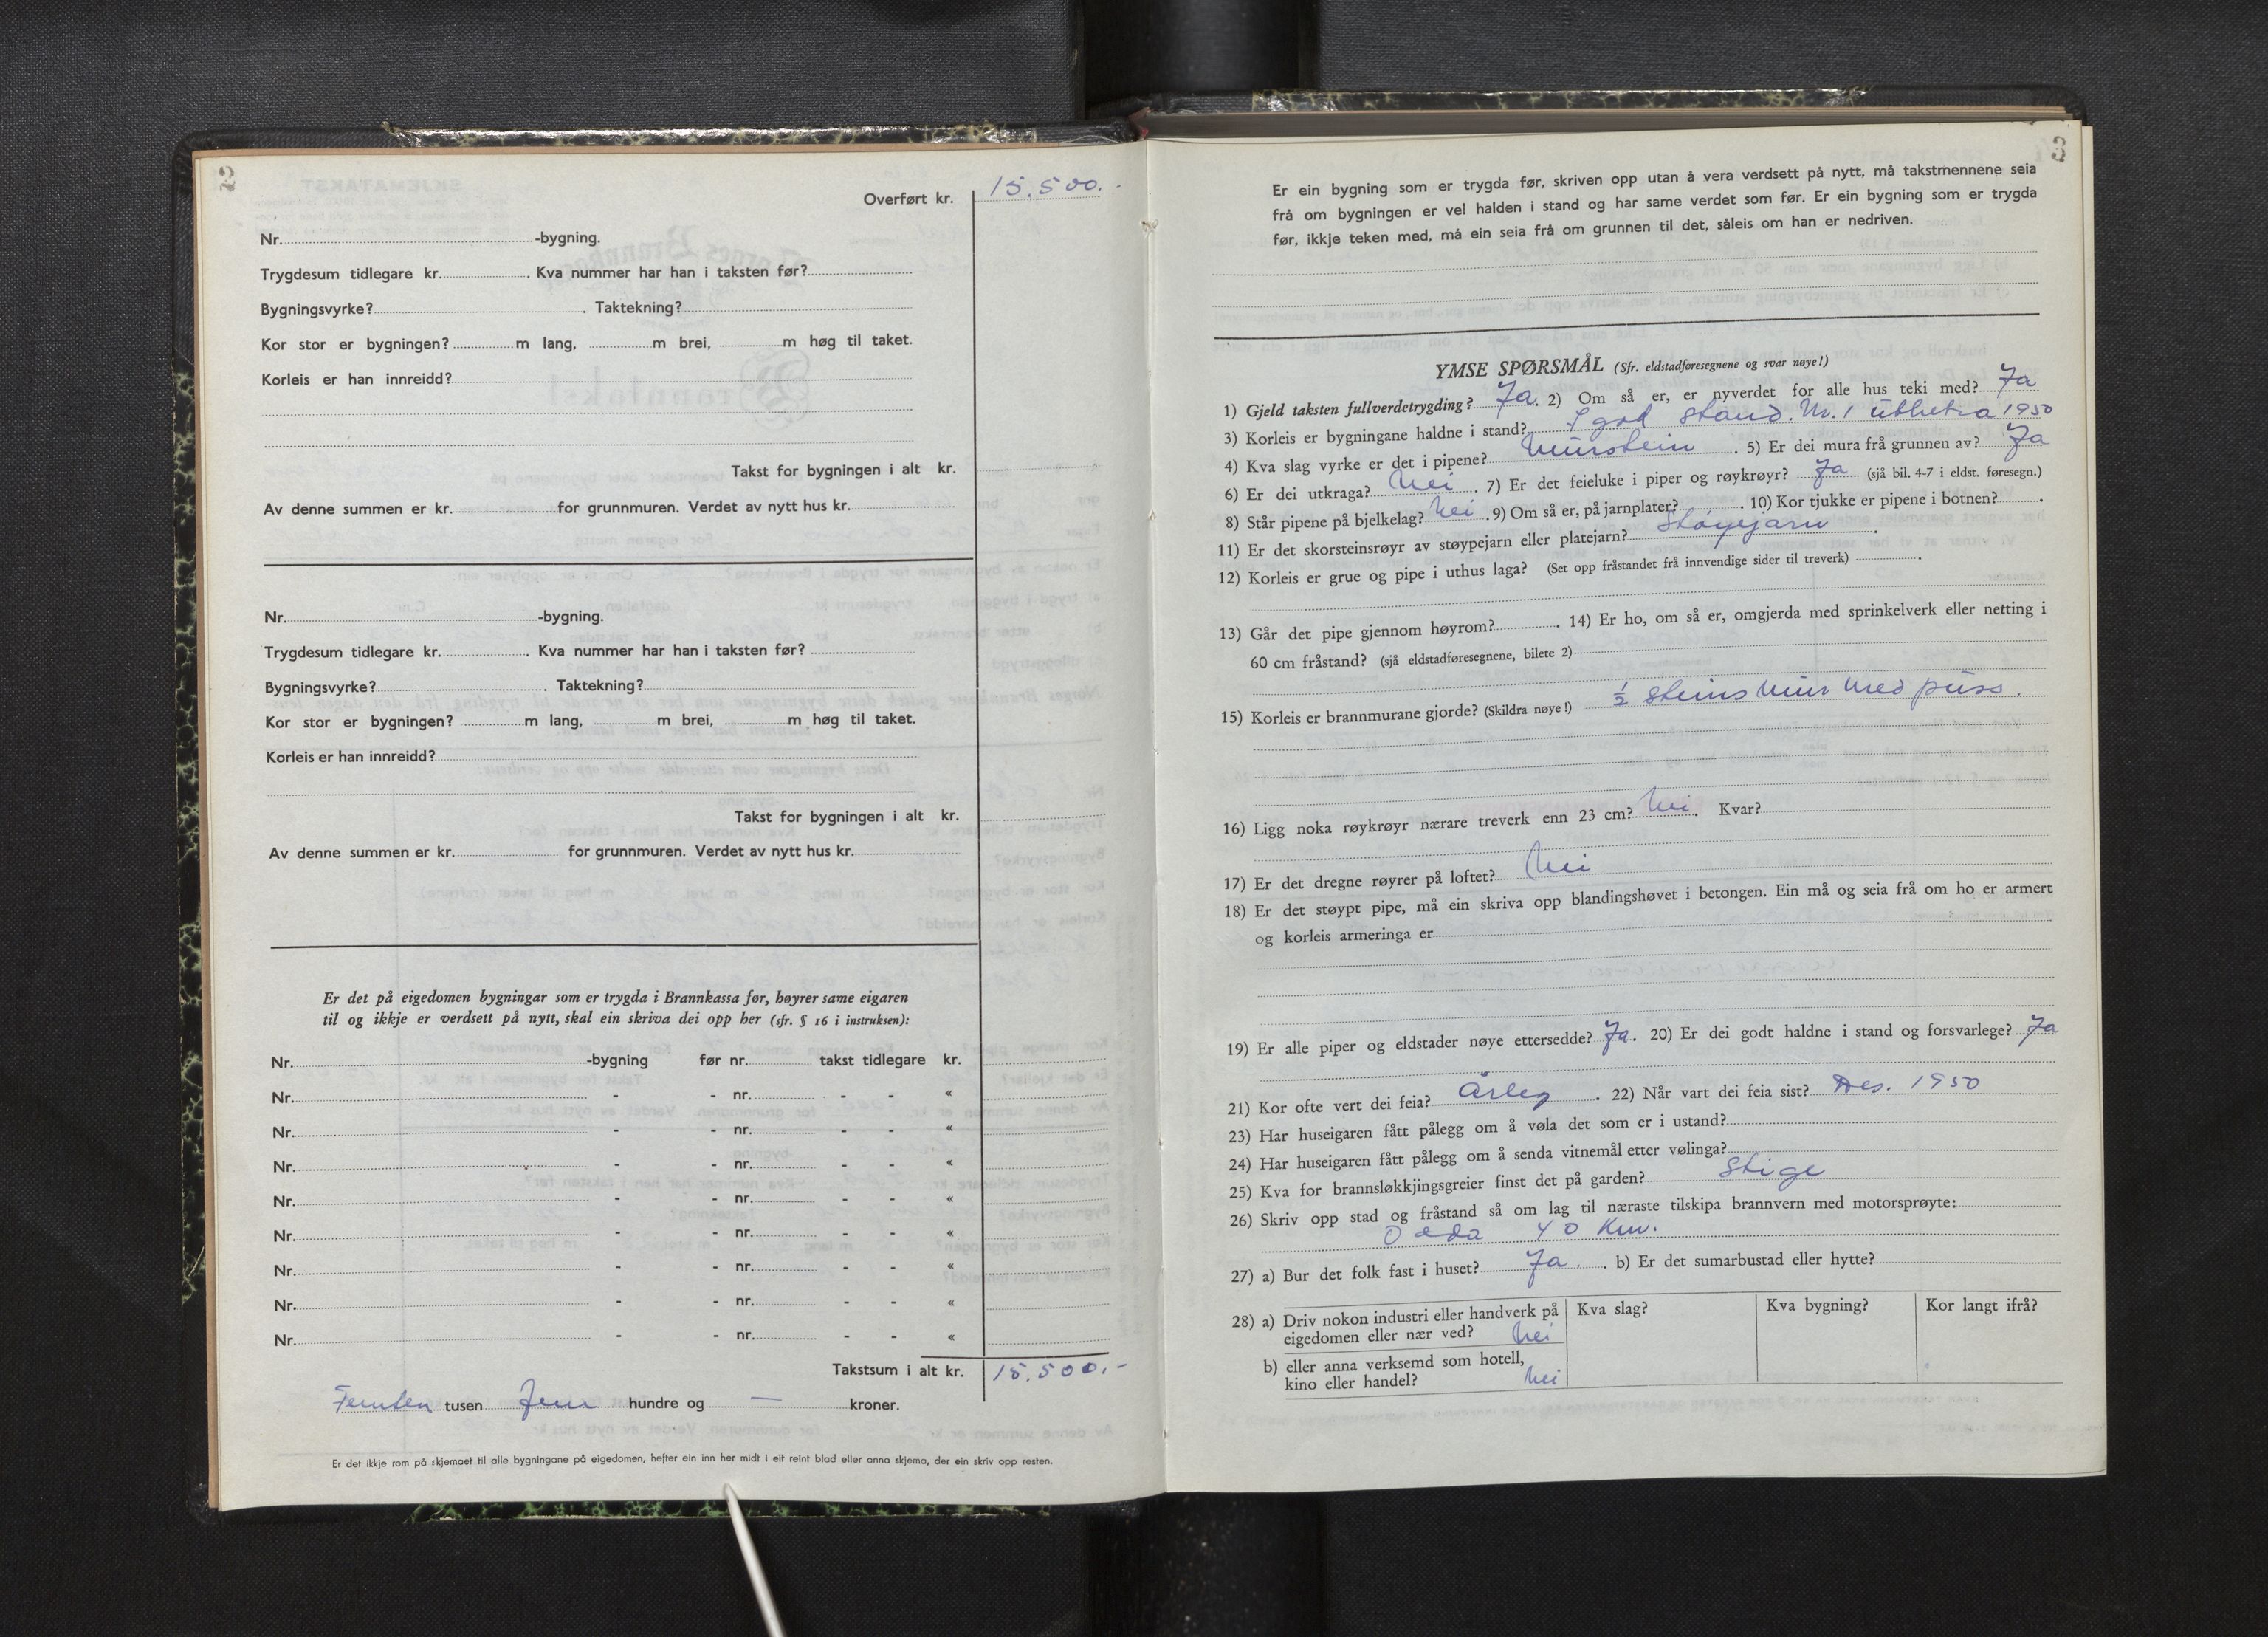 2
Overført kr. 15.500.-
Nr. -bygning.
Trygdesum tidlegare kr. . Kva nummer har han i taksten før?
Bygningsvyrke? . Taktekning?
Kor stor er bygningen? m lang, m brei, m høg til taket.
Korleis er han innreidd?
Takst for bygningen i alt kr.
Av denne summen er kr. for grunnmuren. Verdet av nytt hus kr.
Nr. -bygning.
Trygdesum tidlegare kr. . Kva nummer har han i taksten før?
Bygningsvyrke? . Taktekning?
Kor stor er bygningen? m lang, m brei, m høg til taket.
Korleis er han innreidd?
Takst for bygningen i alt kr.
Av denne summen er kr. for grunnmuren. Verdet av nytt hus kr.
Er det på eigedomen bygningar som er trygda i Brannkassa før, høyrer same eigaren
til og ikkje er verdsett på nytt, skal ein skriva dei opp her (sfr. § 16 i instruksen):
Nr. -bygning før nr. takst tidlegare kr.
Nr. - - nr. - - «
Nr. - - nr. - - «
Nr. - - nr. - - «
Nr. - - nr. - - «
Nr. - - nr. - - «
Nr. - - nr. - - «
Nr. - - nr. - - «
Nr. - - nr. - - «
Takstsum i alt kr. 15.500.-
Femten tusen Fem hundre og — kroner.
Er det ikkje rom på skjemaet til alle bygningane på eigedomen, hefter ein inn her midt i eit reint blad eller anna skjema, der ein skriv opp resten.
3
Er ein bygning som er trygda før, skriven opp utan å vera verdsett på nytt, må takstmennene seia
frå om bygningen er vel halden i stand og har same verdet som før. Er ein bygning som er trygda
før, ikkje teken med, må ein seia frå om grunnen til det, såleis om han er nedriven.
YMSE SPØRSMÅL (Sfr. eldstadføresegnene og svar nøye!)
1) Gjeld taksten fullverdetrygding? Ja. 2) Om så er, er nyverdet for alle hus teki med? Ja
3) Korleis er bygningane haldne i stand? I god stand. Nr. 1 utbetra 1950
4) Kva slag vyrke er det i pipene? Murstein . 5) Er dei mura frå grunnen av? Ja
6) Er dei utkraga? Nei . 7) Er det feieluke i piper og røykrøyr? Ja (sjå bil. 4-7 i eldst. føresegn.)
8) Står pipene på bjelkelag? Nei . 9) Om så er, på jarnplater? . 10) Kor tjukke er pipene i botnen? .
11) Er det skorsteinsrøyr av støypejarn eller platejarn? Støypejarn .
12) Korleis er grue og pipe i uthus laga? (Set opp fråstandet frå innvendige sider til treverk) .
13) Går det pipe gjennom høyrom? . 14) Er ho, om så er, omgjerda med sprinkelverk eller netting i
60 cm fråstand? (sjå eldstadføresegnene, bilete 2)
15) Korleis er brannmurane gjorde? (Skildra nøye!) ½ steins mur med puss.
16) Ligg noka røykrøyr nærare treverk enn 23 cm? Nei. Kvar?
17) Er det dregne røyrer på loftet? Nei
18) Er det støypt pipe, må ein skriva opp blandingshøvet i betongen. Ein må og seia frå om ho er armert
og korleis armeringa er
19) Er alle piper og eldstader nøye ettersedde? Ja. 20) Er dei godt haldne i stand og forsvarlege? Ja
21) Kor ofte vert dei feia? Årleg . 22) Når vart dei feia sist? Des. 1950
23) Har huseigaren fått pålegg om å vøla det som er i ustand?
24) Har huseigaren fått pålegg om å senda vitnemål etter vølinga?
25) Kva for brannsløkkjingsgreier finst det på garden? Stige
26) Skriv opp stad og fråstand så om lag til næraste tilskipa brannvern med motorsprøyte:
Odda 40 Km.
27) a) Bur det folk fast i huset? Ja. . b) Er det sumarbustad eller hytte?
28) a) Driv nokon industri eller handverk på Kva slag? Kva bygning? Kor langt ifrå?
eigedomen eller nær ved? Nei
b) eller anna verksemd som hotell,
kino eller handel? Nei